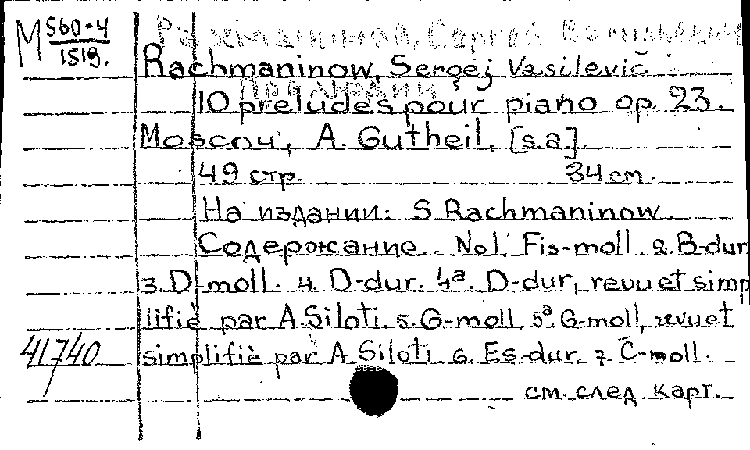 M 560-4
1519.
Рахманинов, Сергей Васильевич
Rachmaninow, Sergej Vasilevič
10 preludes pour piano op. 23.
Moscou, A. Gutheil, [s.a.]
49 стр. 34 cm.
На издании: S. Rachmaninow.
Содержание. No 1. Fis-moll. 2. B-dur
3. D-moll. 4. D-dur. 4a. D-dur, revu et simp
lifiè par A. Siloti. 5. G-moll. 5a. G-moll, revu et
41740 simplifiè par A. Siloti. 6. Es-dur. 7. C-moll.
см. след. карт.